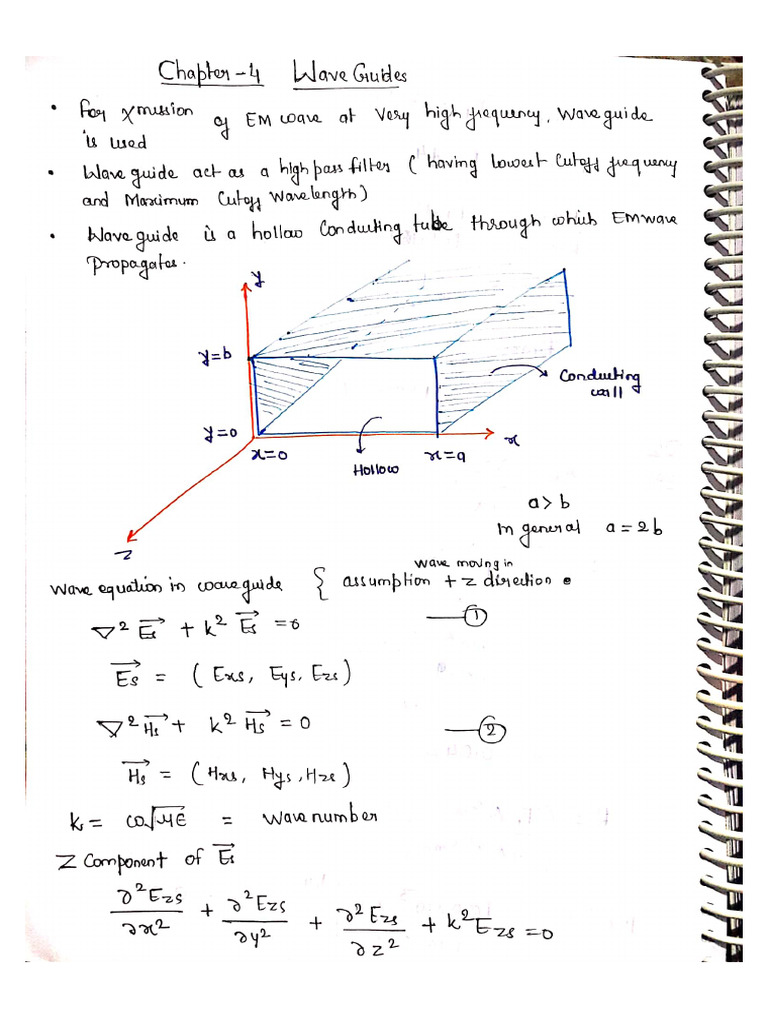 Chapter-4 Wave Guides
• For Xmission of EM wave at very high frequency, Wave guide
is used
• Wave guide act as a high pass filter ( having lowest Cutoff frequency
and Maximum Cutoff wavelength)
• Wave guide is a hollow Conducting tube through which EM wave
Propagates.
y
y=b
Conducting
wall
y=0
x
x=0
x=a
Hollow
a>b
In general a=2b
z
wave moving in
Wave equation in waveguide { assumption +z direction
∇² E⃗s + k² E⃗s =0 —①
E⃗s = (Exs, Eys, Ezs)
∇² H⃗s + k² H⃗s = 0 —②
H⃗s = (Hxs, Hys, Hzs)
k = ω√με = Wave number
Z Component of E⃗s
∂²Ezs/∂x² + ∂²Ezs/∂y² + ∂²Ezs/∂z² + k²Ezs =0